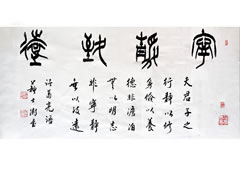 寧靜致遠
夫君子之
行靜以修
身儉以養
德非澹泊
無以明志
非寧靜
無以致遠
諸葛亮語